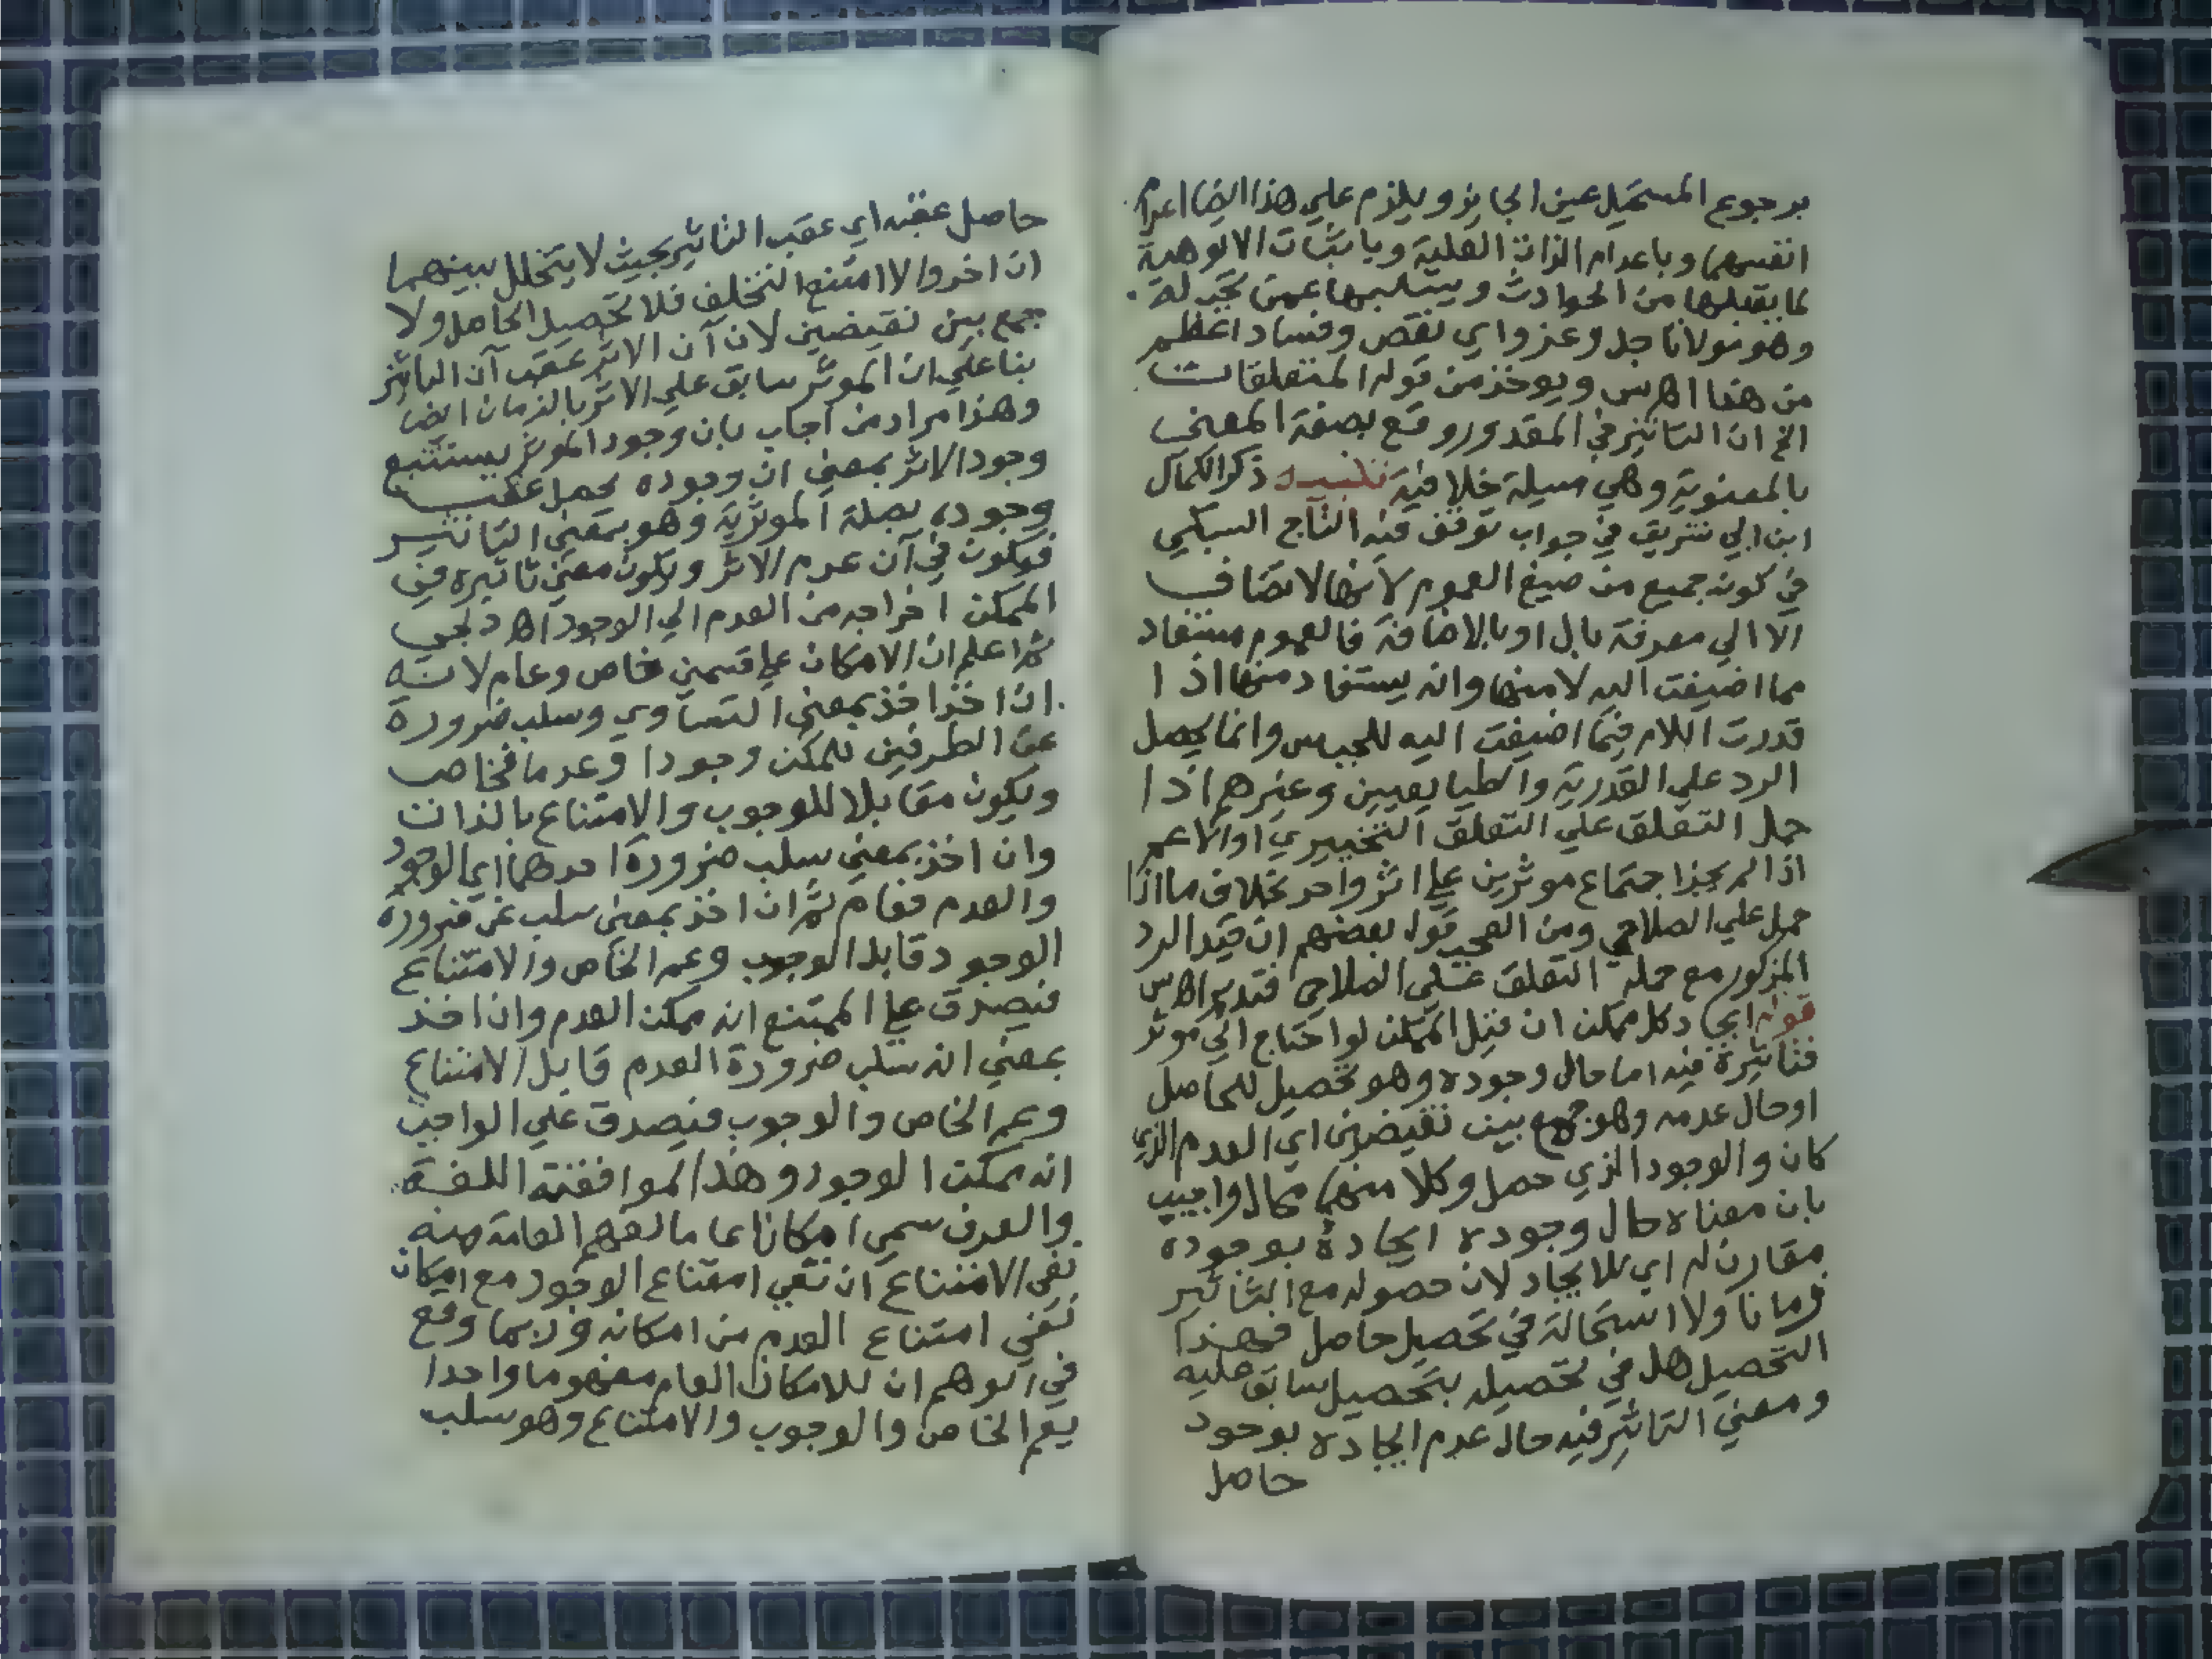 برجوع المستحيل عين الجايز ويلزم علي هذا ايضا اعدام
انفسهما وباعدام الذات العلية وباثبات الالوهية
لما يقبلها من الحوادث ويسلبها عمن تجب له
وهو مولانا جل وعز واي نقص وفساد اعظم
من هذا اهـ س ويوخذ من قوله المتعلقات
الخ ان التاثير في المقدور وقع بصفة المعني
بالمعنوية وهي مسيلة خلافية تنبيه ذكر الكمال
ابن ابي شريف في جواب توقف فيه التاج السبكي
في كونه جميع من صيغ العموم لانها لا تضاف
الا الي معرفة بال او بالاضافة فالعموم مستفاد
مما اضيفت اليه لا منها وانه يستفاد منها اذا
قدرت اللام فيما اضيفت اليه للجنس وانما يحصل
الرد علي القدرية والطبايعيين وغيرهم اذا
حمل التعلق علي التعلق التنجيزي او الاعم
اذا لم يجز اجتماع موثرين علي اثر واحد بخلاف ما اذا
حمل علي الصلاحي ومن العجب قول بعضهم ان قيد الرد
المذكور مع حمله التعلق علي الصلاحي فتدبر اهـ س
قوله ايجاد كل ممكن ان قيل الممكن لو احتاج الي موثر
فتاثيره فيه اما حال وجوده وهو تحصيل للحاصل
او حال عدمه وهو جمع بين نقيضين اي العدم الذي
كان والوجود الذي حصل وكلا منهما محال واجيب
بان معناه حال وجوده ايجاده بوجوده
مقارن له اي للايجاد لان حصوله مع التاثير
زمانا ولا استحالة في تحصيل حاصل فهذا
التحصيل هل في تحصيله بتحصيل سابق عليه
ومعني التاثير فيه حال عدم ايجاده بوجود
حاصل
حاصل عقبه اي عقب التاثير بحيث لا يتخلل بينهما
ان اخر والا امتنع التخلف فلا تحصيل الحاصل ولا
جمع بين نقيضين لان آن الاثر عقب آن التاثير
بنا علي ان الموثر سابق علي الاثر بالزمان ايضا
وهذا مراد من اجاب بان وجود الموثر يستتبع
وجود الاثر بمعني ان وجوده يحصل عقب
وجوده بصلة الموثرية وهو بمعني التاثير
فيكون في آن عدم الاثر ويكون معني تاثيره في
الممكن اخراجه من العدم الي الوجود اهـ دلجي
ثم اعلم ان الامكان علي قسمين خاص وعام لانه
ان اخذ اخذ بمعني التساوي وسلب ضرورة
عن الطرفين للممكن وجودا وعدما فخاص
ويكون مقابلا للوجوب والامتناع بالذات
وان اخذ بمعني سلب ضرورة احدهما اي الوجود
والعدم فعام ثم ان اخذ بمعني سلب عن ضرورة
الوجود قابل الوجوب وعم الخاص والامتناع
فيصدق علي الممتنع انه ممكن العدم وان اخذ
بمعني انه سلب ضرورة العدم قابل الامتناع
وعم الخاص والوجوب فيصدق علي الواجب
انه ممكن الوجود وهذا لموافقته اللغة
والعرف سمي امكانا عاما لفهم العامة منه
نفي الامتناع ان نفي امتناع الوجود مع امكان
نفي امتناع العدم من امكانه وربما وقع
في الوهم ان للامكان العام مفهوما واحدا
يعم الخاص والوجوب والامتناع وهو سلب